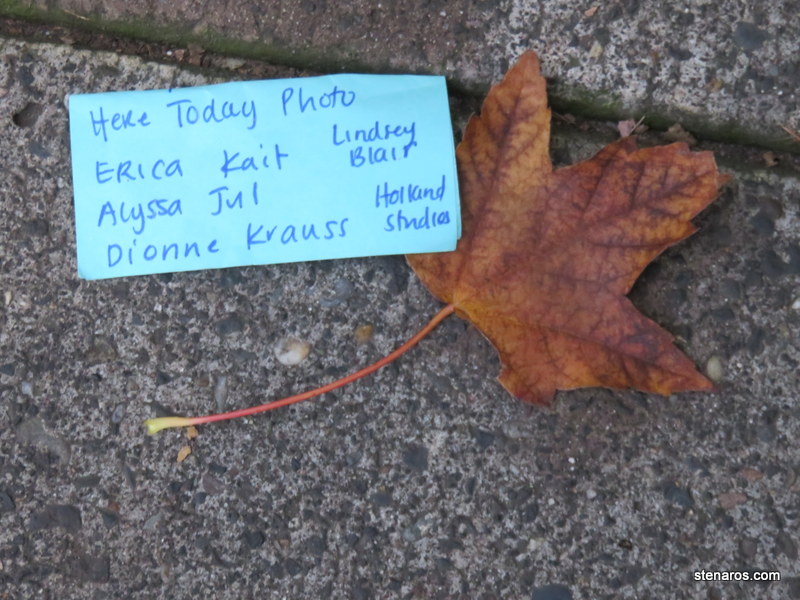 Here Today Photo
Erica Kait
Lindsey
Blair
Alyssa Jul
Holland
Studios
Dionne Krauss
stenaros.com